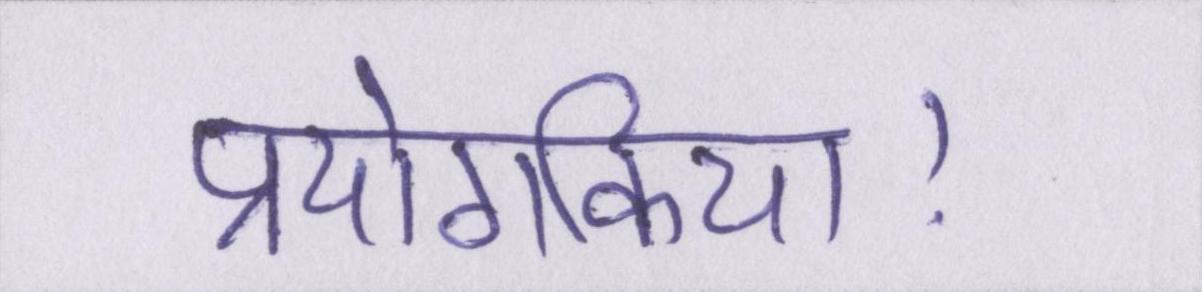 प्रयोगकिया!